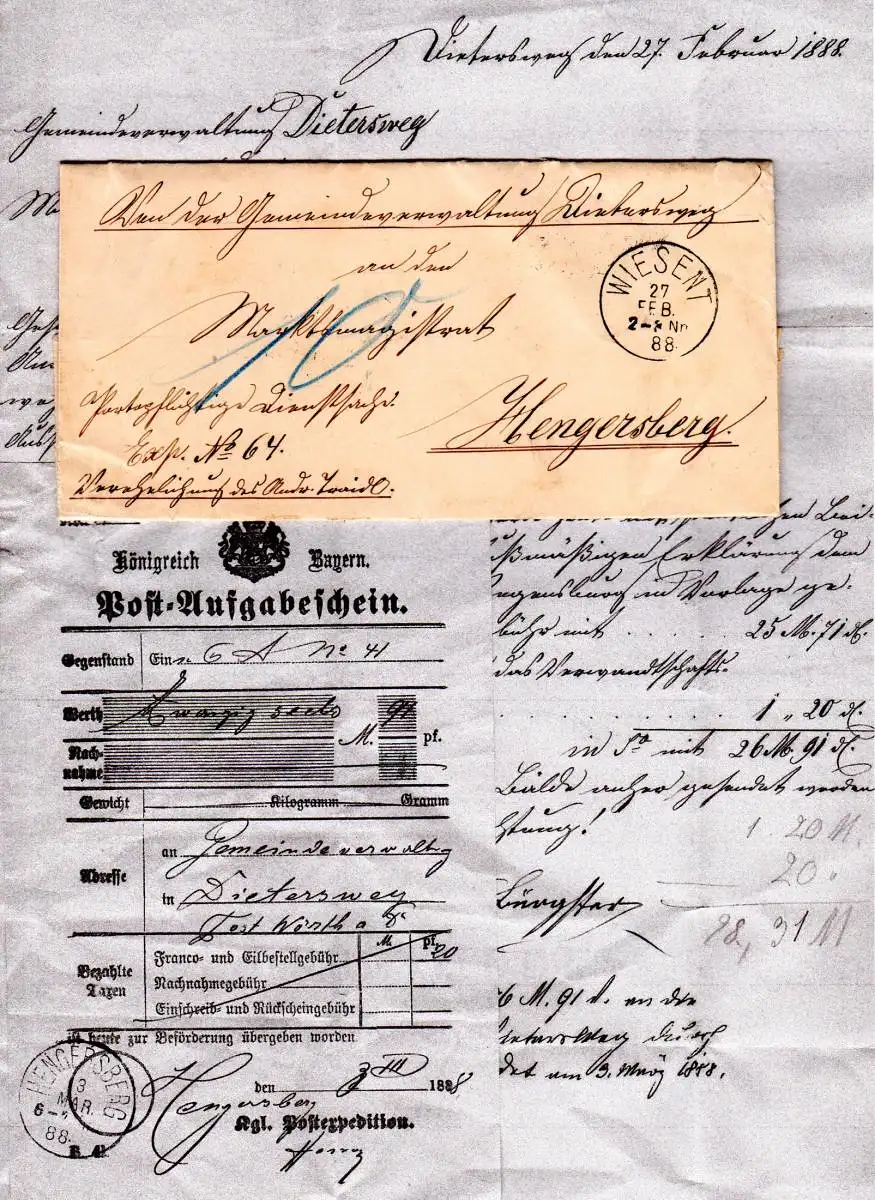 Dietersweg den 27. Februar 1888.
Gemeindeverwaltung Dietersweg
Von der Gemeindeverwaltung Dietersweg
an den
Marktsmagistrat
10
Portopflichtige Dienstsache.
Exp. No 64.
Verehelichung des Andr. Traidl.
Hengersberg.
WIESENT
27
FEB.
88.
Erklärung dem
in Vorlage ge-
bühr mit . . . . 25 M. 71 d.
das Verwandtschafts-
1 " 20 d.
in Sa mit 26 M. 91 d.
Bälde anher gesendet werden
1. 20 M.
20.
28,31 M
6 M. 91 d. an die
Dietersweg durch
det am 3. März 1888.
Königreich Bayern.
Post-Aufgabeschein.
Gegenstand Ein
Werth Zwanzig sechs M. 91 pf.
Nach-
nahme
Gewicht Kilogramm Gramm
Adresse
an Gemeindeverwaltg
in Dietersweg
Post Wörth a D
M. pf.
Bezahlte
Taxen
Franco- und Eilbestellgebühr 20
Nachnahmegebühr
Einschreib- und Rückscheingebühr
ist heute zur Beförderung übergeben worden
Hengersberg den 3 III 1888
Kgl. Postexpedition.
HENGERSBERG
3
MAR.
88.